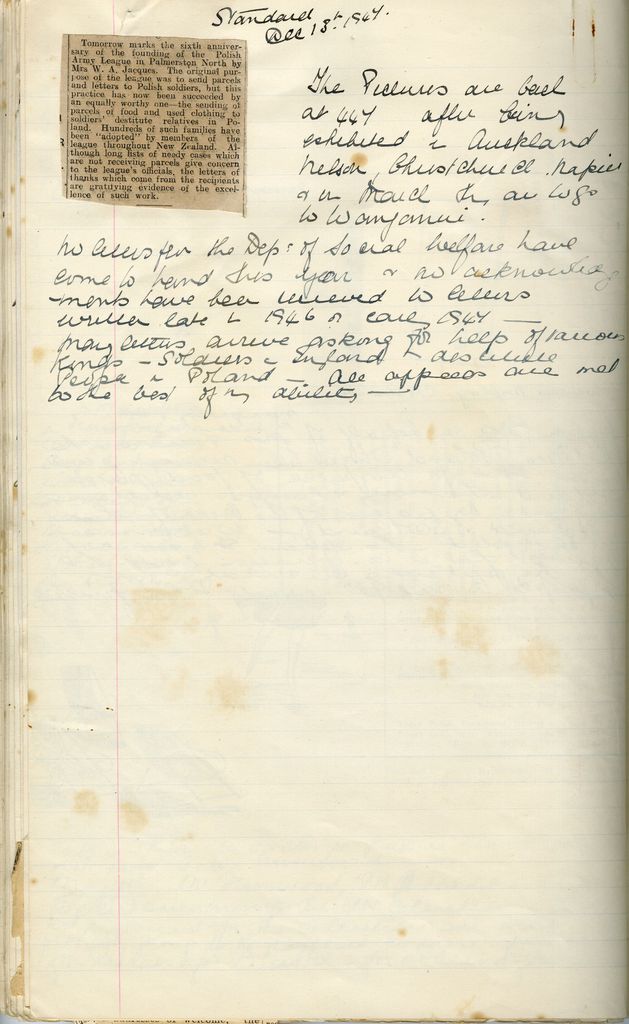 Standard
Dec 13th 1947.
Tomorrow marks the sixth anniver-
sary of the founding of the Polish
Army League in Palmerston North by
Mrs W. A. Jacques. The original pur-
pose of the league was to send parcels
and letters to Polish soldiers, but this
practice has now been succeeded by
an equally worthy one—the sending of
parcels of food and used clothing to
soldiers' destitute relatives in Po-
land. Hundreds of such families have
been "adopted" by members of the
league throughout New Zealand. Al-
though long lists of needy cases which
are not receiving parcels give concern
to the league's officials, the letters of
thanks which come from the recipients
are gratifying evidence of the excel-
lence of such work.
The Pictures are back
at 447 after being
exhibited in Auckland
Nelson, Christchurch Napier
& in March they are to go
to Wanganui.
No letters from the Dept of Social Welfare have
come to hand this year & no acknowledg
-ments have been received to letters
written late in 1946 or early 1947 —
Many letters arrive asking for help of various
kinds — Soldiers in England & destitute
People in Poland — All appeals are met
to the best of my ability —
addresses of welcome, the